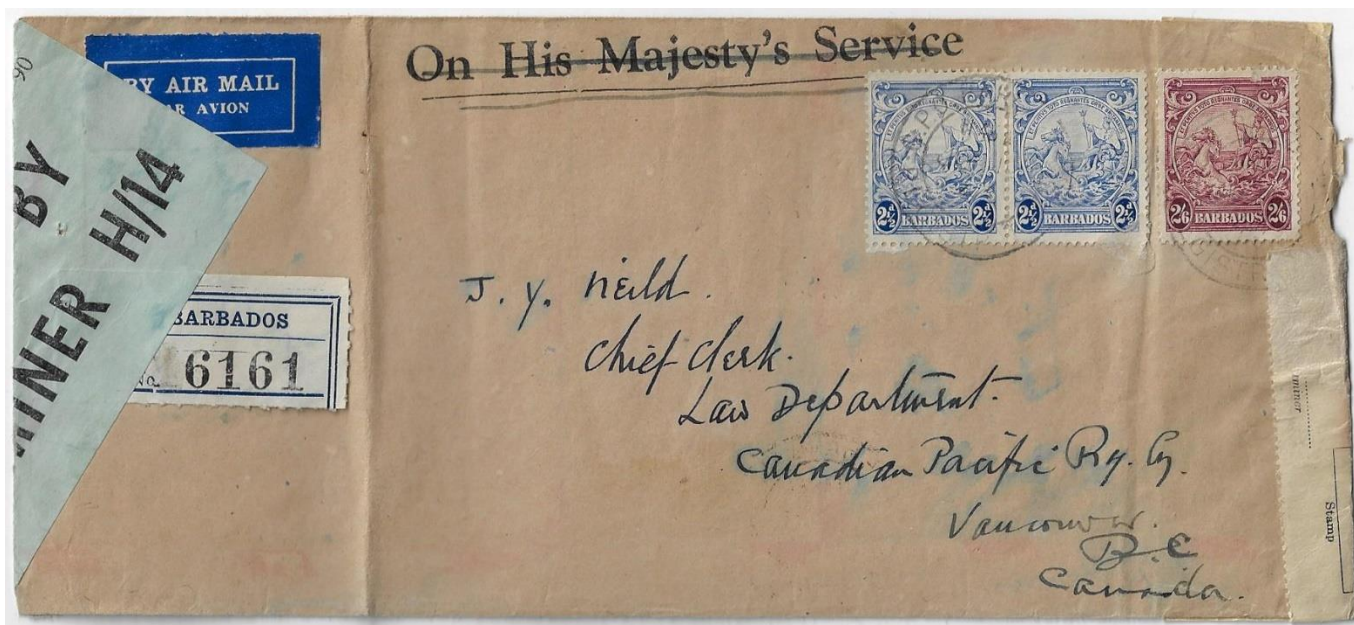 90
BY AIR MAIL
AR AVION
On His Majesty's Service
BY
MINER H/14
BARBADOS
No. 6161
2½d BARBADOS 2½d
2½d BARBADOS 2½d
2/6 BARBADOS 2/6
J. Y. Neild.
Chief Clerk.
Law Department.
Canadian Pacific Ry. Cy.
Vancouver.
B.C
Canada.
Stamp